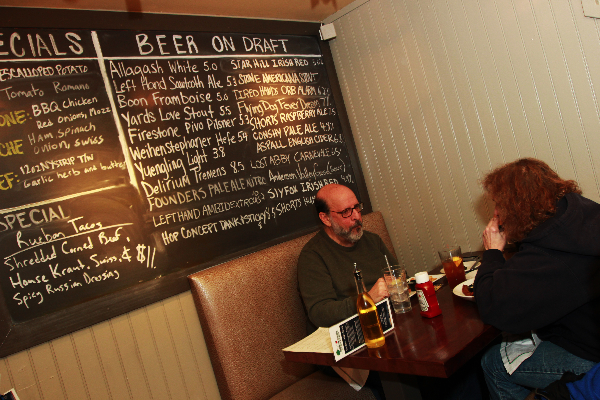 SPECIALS
ESCALLOPED POTATO
Tomato Romano
BBQ Chicken
Red onions, Mozz
Ham Spinach
Onion, Swiss
12oz NY STRIP
Garlic herb and butter
SPECIAL
Rueban Tacos
Shredded Corned Beef,
House Kraut, Swiss, &
Spicy Russian Dressing
$11
BEER ON DRAFT
Allagash White 5.0
Left Hand Sawtooth Ale 5.3
Boon Framboise 5.0
Yards Love Stout 5.5
Firestone Pivo Pilsner 5.3
Weihenstephaner Hefe 5.4
Yuengling Light 3.8
Delirium Tremens 8.5
FOUNDERS PALE ALE NITRO
LEFTHAND
HOP CONCERT TANK
STAR HILL IRISH RED
STONE AMERICANA STOUT
TIRED HANDS
Flying Dog Fever Dream
SHORTS RASPBERRY ALE
CONSHY PALE ALE
ASPALL ENGLISH CIDER
LOST ABBY CARNEVALE
Anderson Valley
SLY FOX IRISH RED
SHORTS